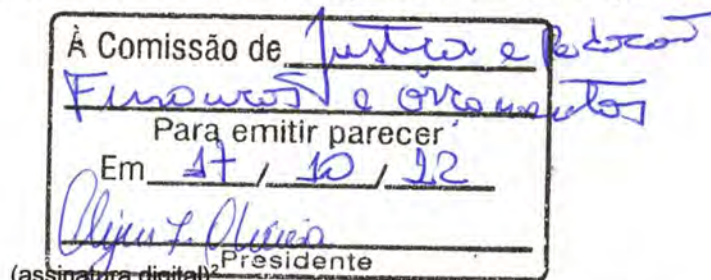 À Comissão de Justiça e Redação
Finanças e Orçamentos
Para emitir parecer
Em 17 / 10 / 22
Presidente
(assinatura digital)²